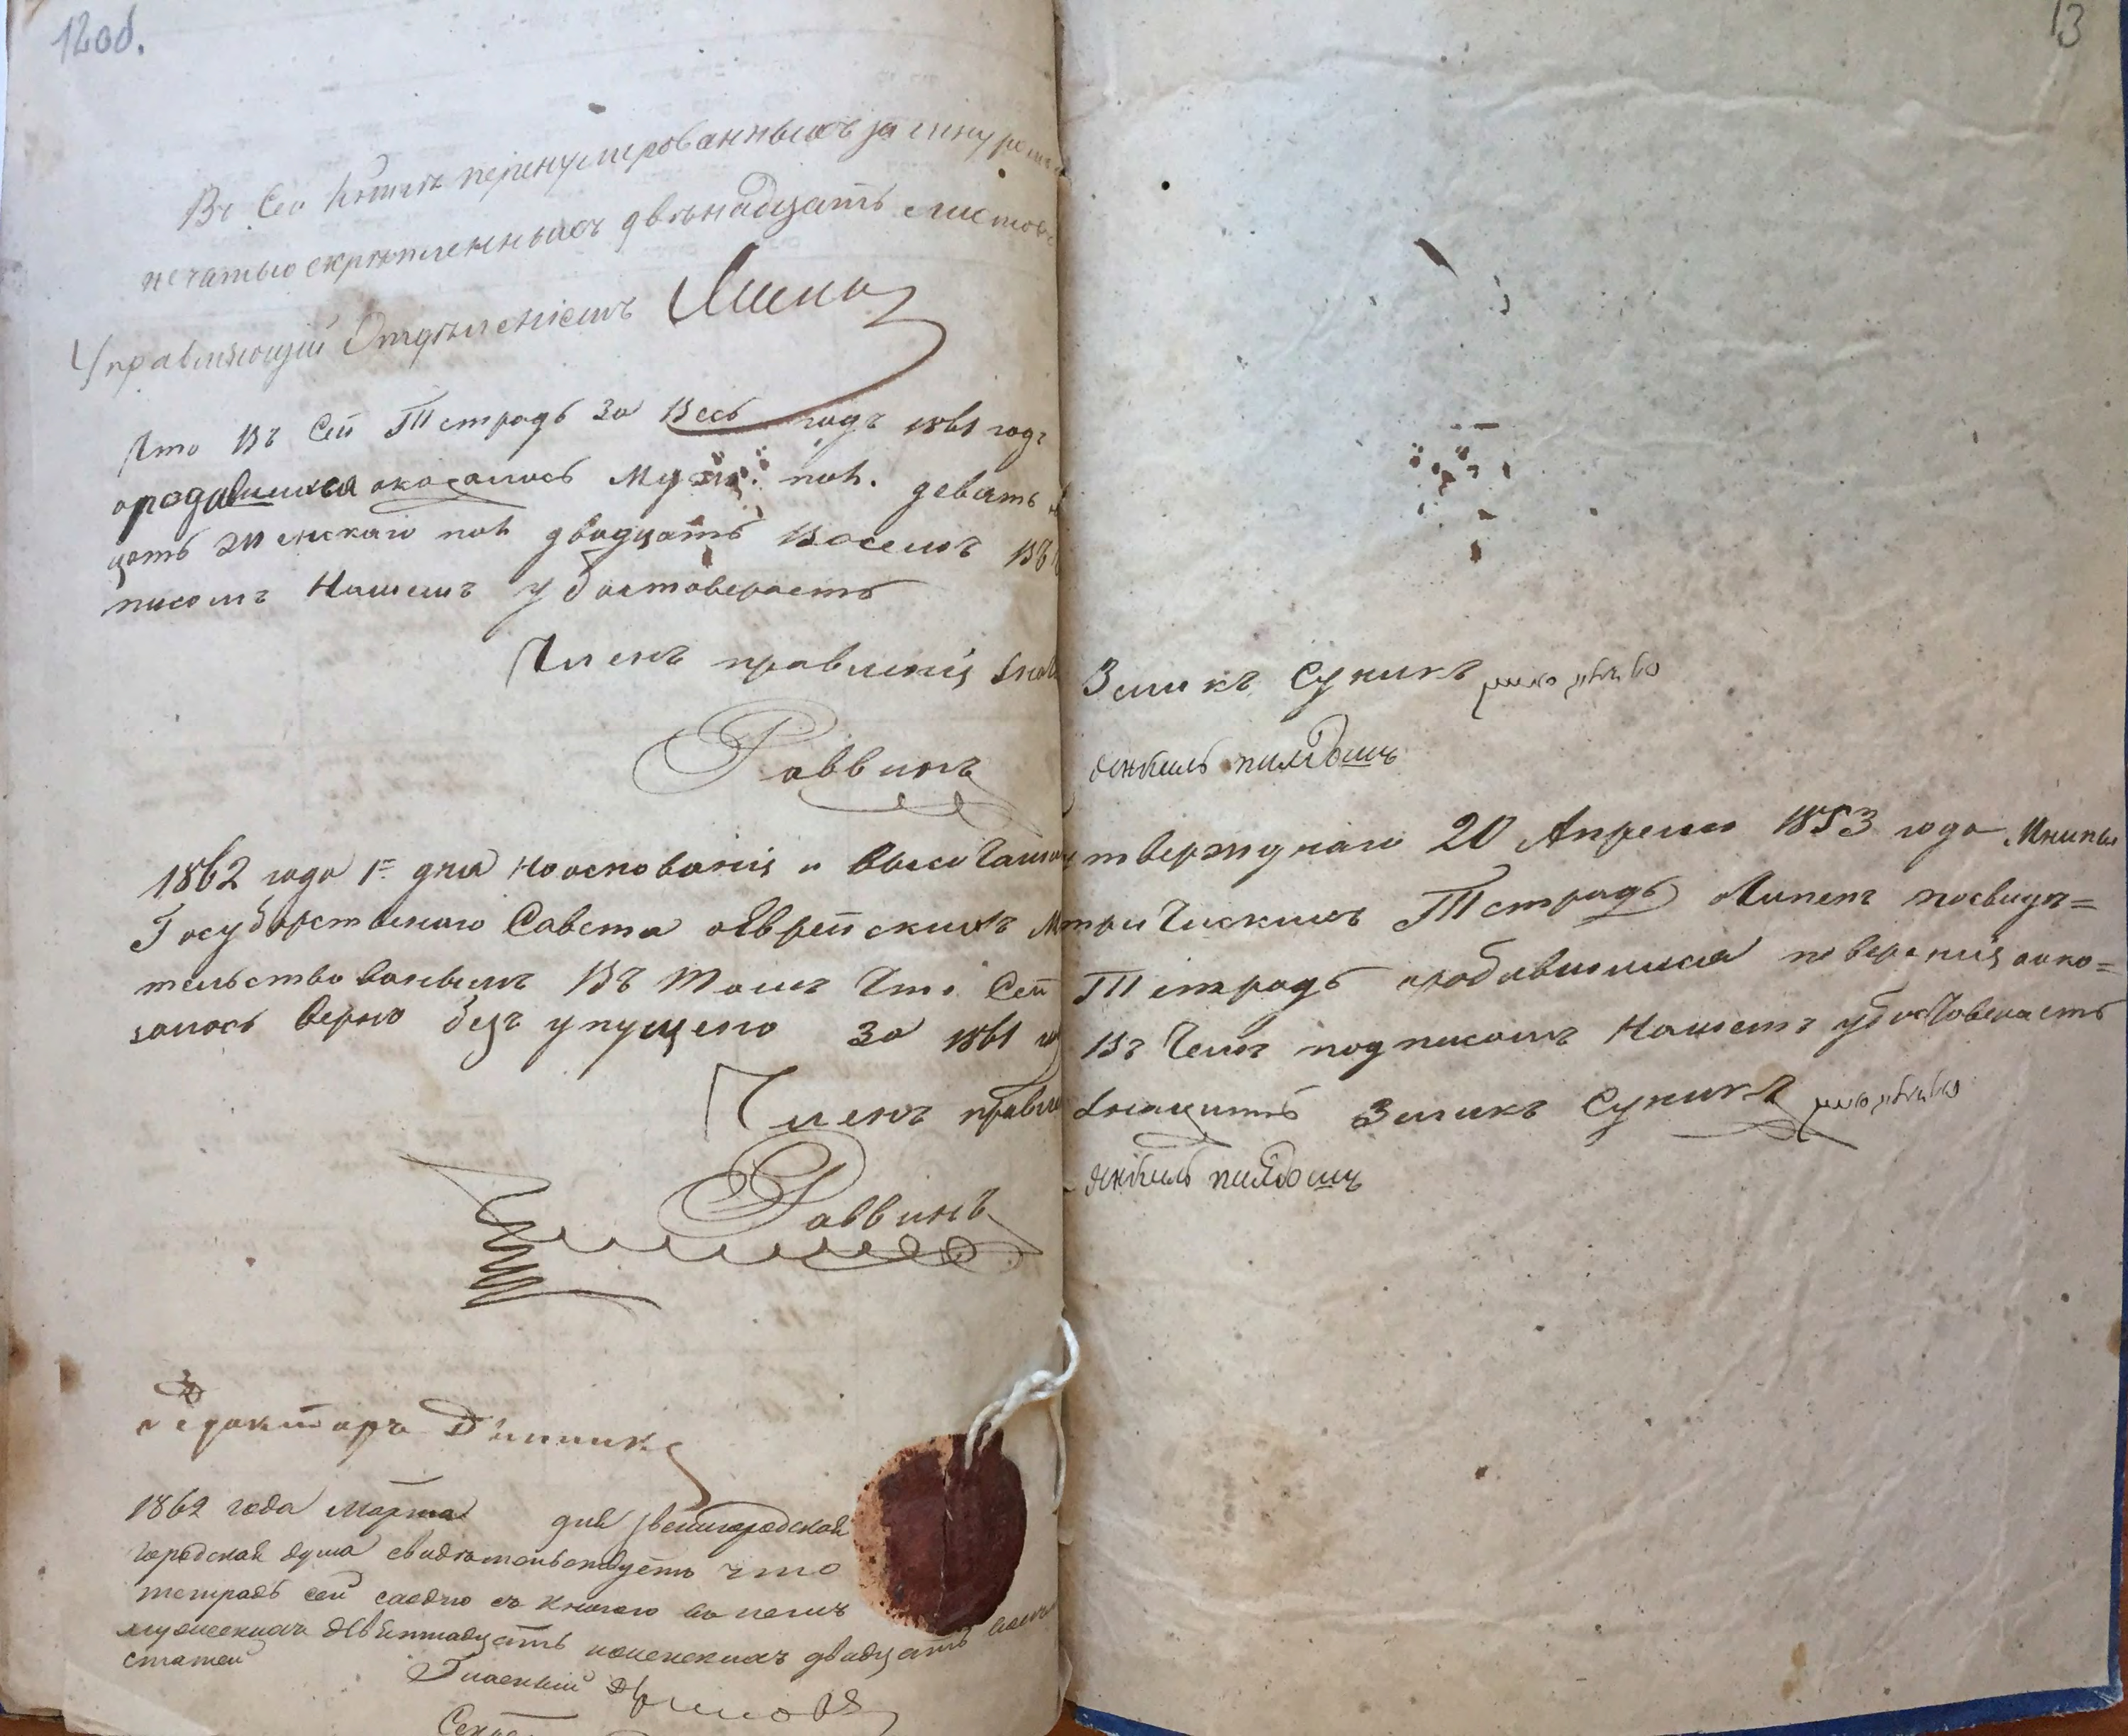 12об.
13
Въ сей книгѣ перенумерованныхъ за шнуромъ
печатью скрѣпленныхъ двѣнадцать листовъ
Управляющій Отдѣленіемъ
Что Въ Сей Тетрадь За Весь годъ 1861 годъ
ародавшихся оказалось Муж. пол. девять
цать женскаго пол двадцать Восемъ Въ
писомъ Нашемъ удостовераемъ
Членъ правленія Зеликъ Суникъ
Раввинъ
1862 года 1 дня На основанія и высочайше утвержднаго 20 Апреля 1853 года Мнинья
Государственаго Савета аЕврейскихъ Метрическихъ Тетрадь посвидѣ=
тельствованымъ Въ Томъ Что Сей Тетрадь ародавшимися поверения аока=
залось верно безъ упущено За 1861 Въ Чемъ подписомъ Нашемъ удостовераемъ
Членъ правле Зеликъ Суникъ
Раввинъ
Редакторъ
1862 года марта дня Звенигородская
городская дума свидѣтельствуетъ что
тетрадь сей сходно съ книгою по неи
мужескихъ девятнадцать женскихъ двадцать восемъ
статей
Гласный